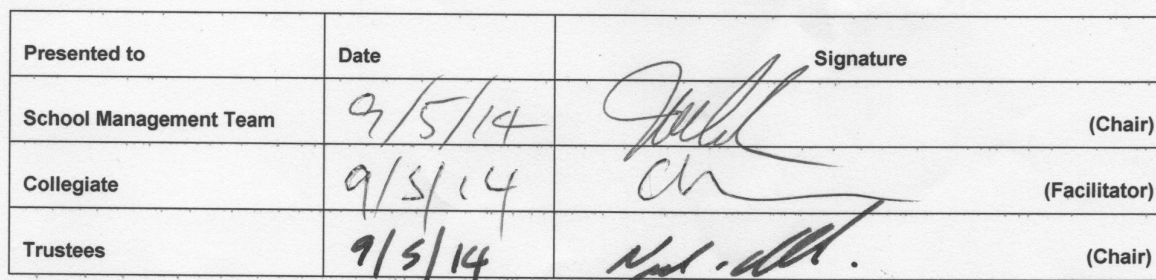 Presented to Date Signature
School Management Team 9/5/14 (Chair)
Collegiate 9/5/14 (Facilitator)
Trustees 9/5/14 (Chair)